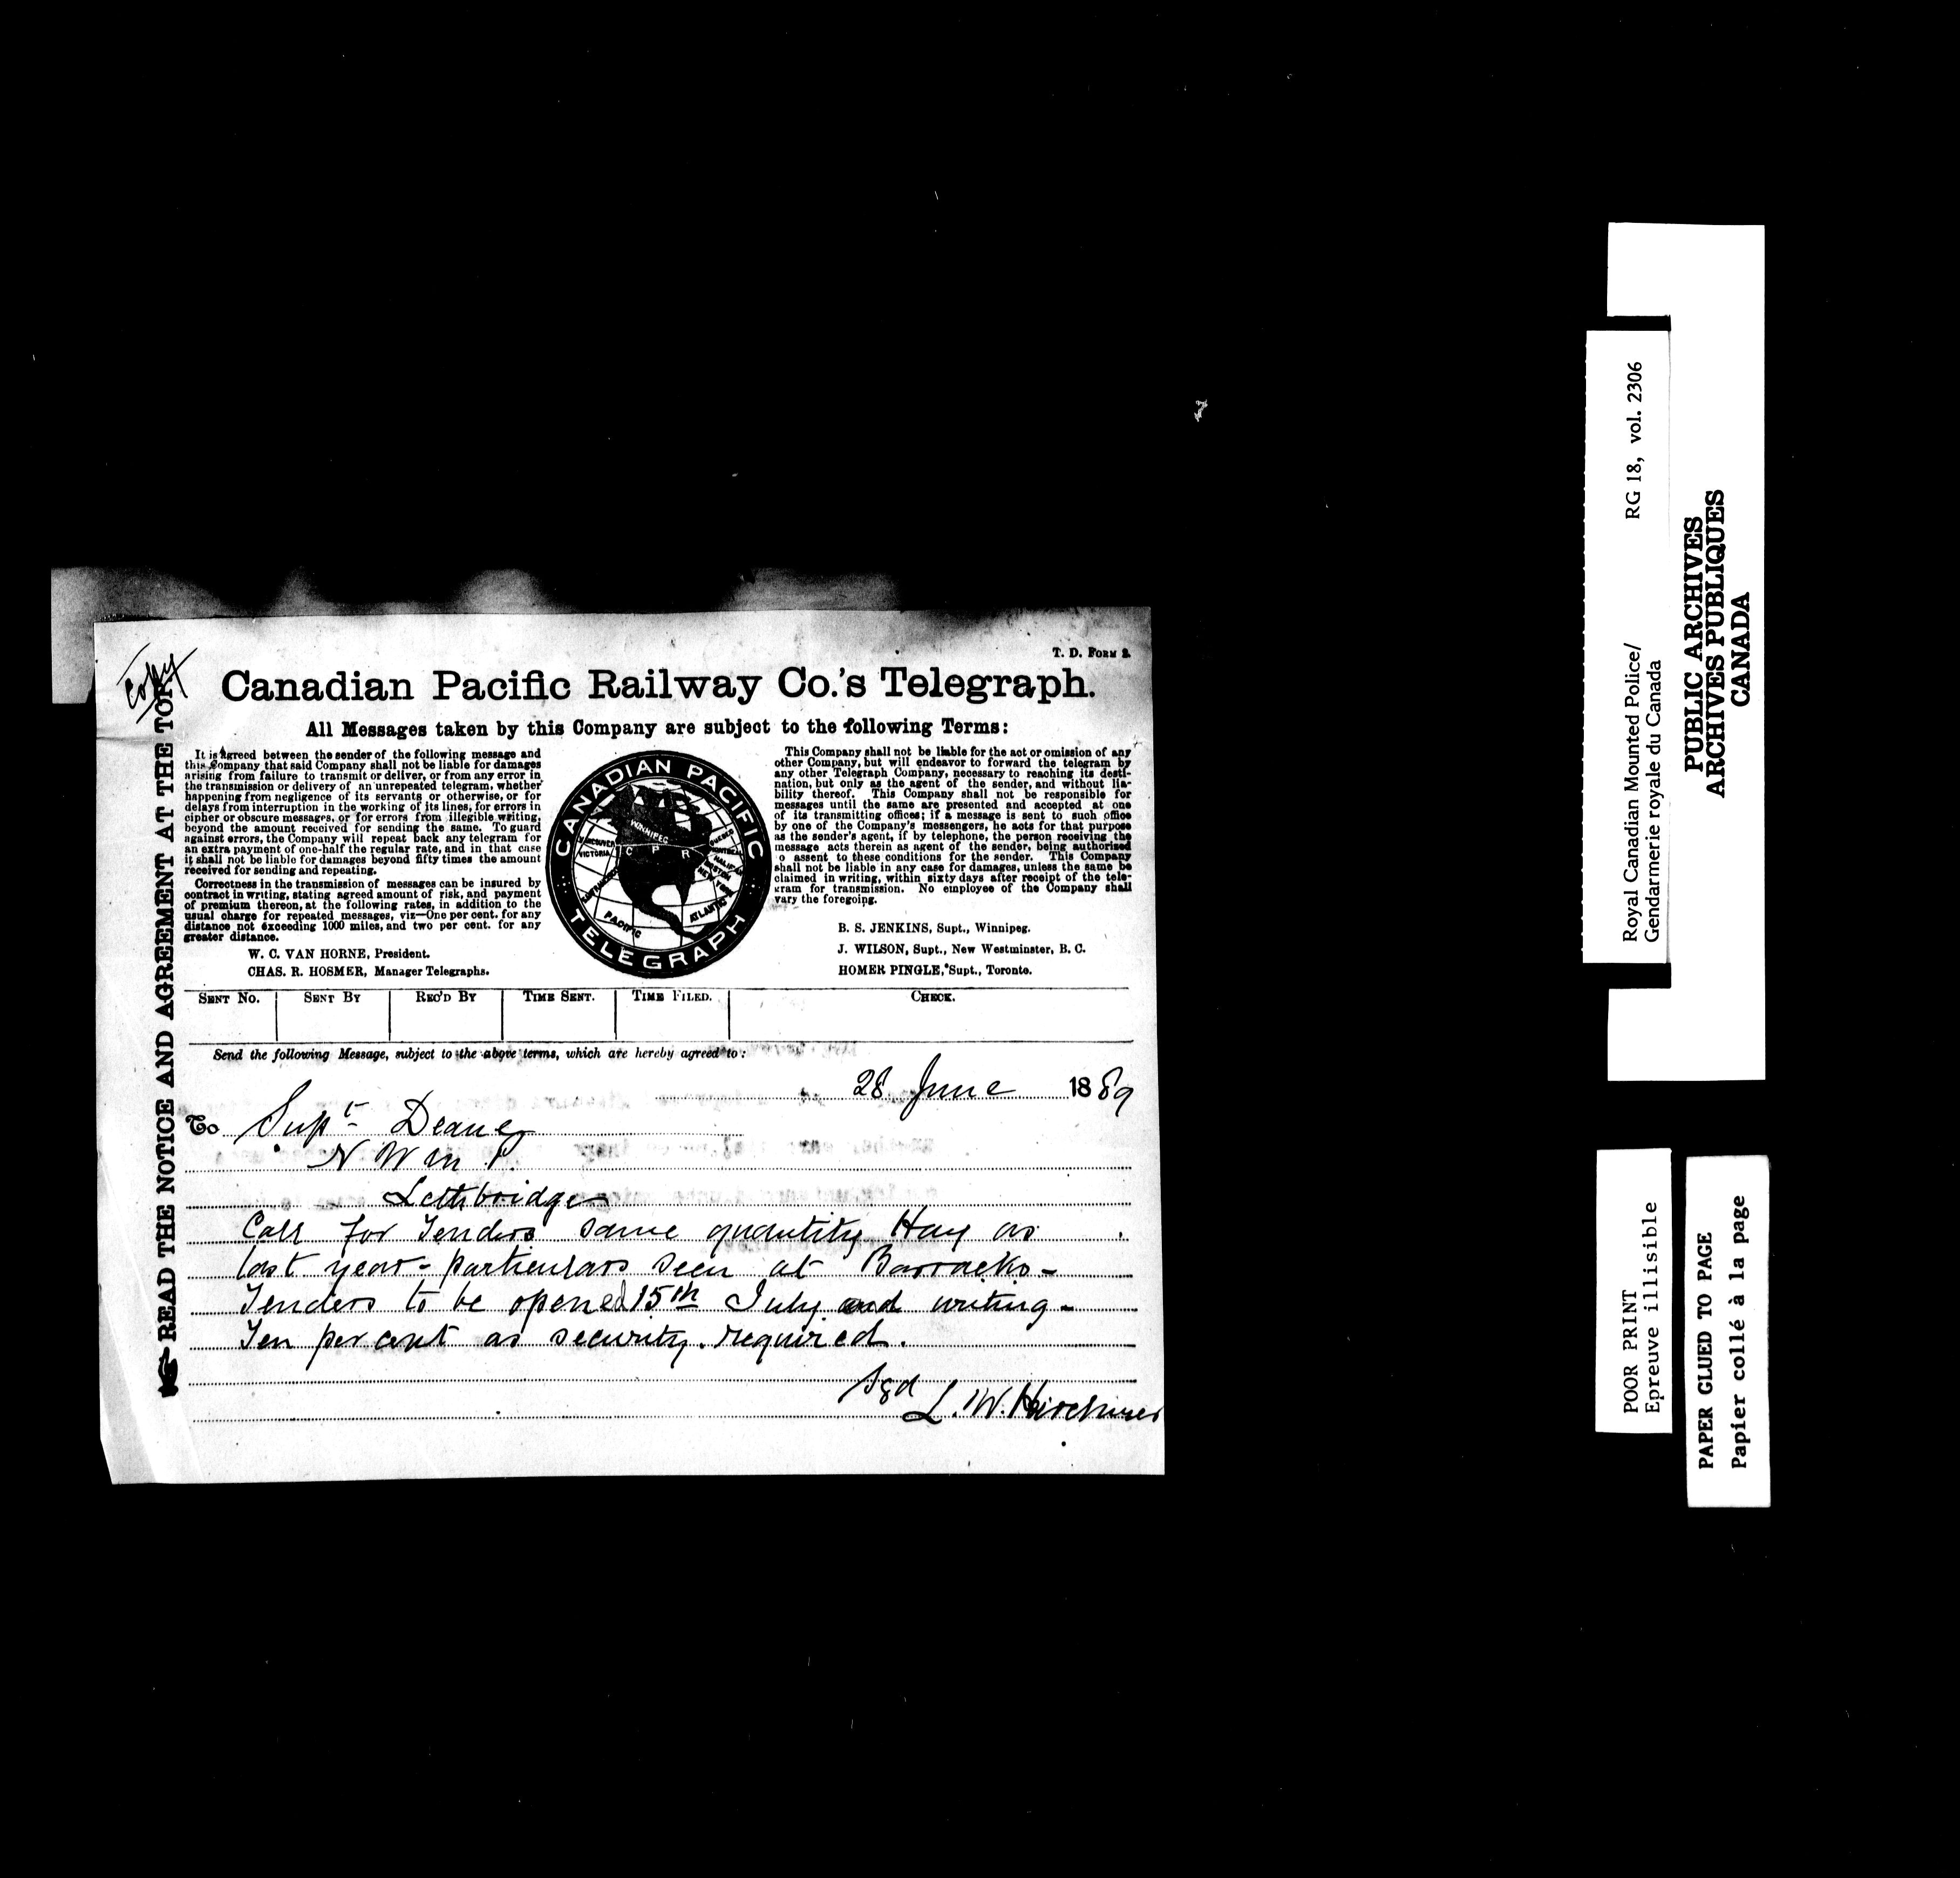 Copy
T. D. FORM 2.
Canadian Pacific Railway Co.'s Telegraph.
All Messages taken by this Company are subject to the following Terms:
It is agreed between the sender of the following message and
this Company that said Company shall not be liable for damages
arising from failure to transmit or deliver, or from any error in
the transmission or delivery of an unrepeated telegram, whether
happening from negligence of its servants or otherwise, or for
delays from interruption in the working of its lines, for errors in
cipher or obscure messages, or for errors from illegible writing,
beyond the amount received for sending the same. To guard
against errors, the Company will repeat back any telegram for
an extra payment of one-half the regular rate, and in that case
it shall not be liable for damages beyond fifty times the amount
received for sending and repeating.
Correctness in the transmission of messages can be insured by
contract in writing, stating agreed amount of risk, and payment
of premium thereon, at the following rates, in addition to the
usual charge for repeated messages, viz—One per cent. for any
distance not exceeding 1000 miles, and two per cent. for any
greater distance.
W. C. VAN HORNE, President.
CHAS. R. HOSMER, Manager Telegraphs.
CANADIAN PACIFIC
TELEGRAPH
WINNIPEG
VANCOUVER
VICTORIA
C P R
QUEBEC
MONTREAL
HALIFAX
BOSTON
NEW YORK
PACIFIC
ATLANTIC
This Company shall not be liable for the act or omission of any
other Company, but will endeavor to forward the telegram by
any other Telegraph Company, necessary to reaching its desti-
nation, but only as the agent of the sender, and without lia-
bility thereof. This Company shall not be responsible for
messages until the same are presented and accepted at one
of its transmitting offices; if a message is sent to such office
by one of the Company's messengers, he acts for that purpose
as the sender's agent, if by telephone, the person receiving the
message acts therein as agent of the sender, being authorized
o assent to these conditions for the sender. This Company
shall not be liable in any case for damages, unless the same be
claimed in writing, within sixty days after receipt of the tele-
gram for transmission. No employee of the Company shall
vary the foregoing.
B. S. JENKINS, Supt., Winnipeg.
J. WILSON, Supt., New Westminster, B. C.
HOMER PINGLE, Supt., Toronto.
SENT NO. SENT BY REC'D BY TIME SENT. TIME FILED. CHECK.
Send the following Message, subject to the above terms, which are hereby agreed to:
28 June 1889
To Supt Deane
N W M P.
Lethbridge
Call for Tenders same quantity Hay as
last year - particulars seen at Barracks -
Tenders to be opened 15th July and writing -
Ten per cent as security required.
Sgd
L. W. Herchmer
READ THE NOTICE AND AGREEMENT AT THE TOP.
Royal Canadian Mounted Police/ RG 18, vol. 2306
Gendarmerie royale du Canada
PUBLIC ARCHIVES
ARCHIVES PUBLIQUES
CANADA
POOR PRINT
Epreuve illisible
PAPER GLUED TO PAGE
Papier collé à la page